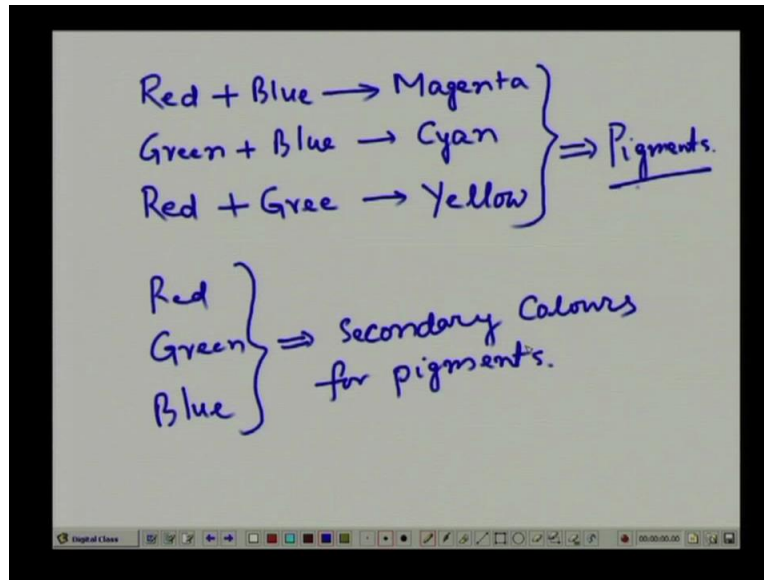 Red + Blue → Magenta
Green + Blue → Cyan
Red + Gree → Yellow
⇒ Pigments.
Red
Green
Blue
⇒ Secondary Colours
for pigments.
Digital Class
00:00:00.00